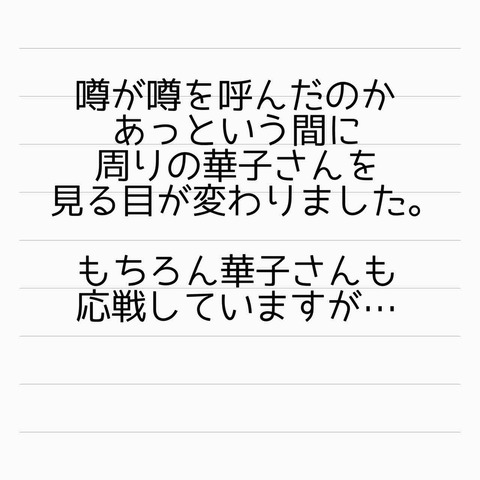 噂が噂を呼んだのか
あっという間に
周りの華子さんを
見る目が変わりました。
もちろん華子さんも
応戦していますが…